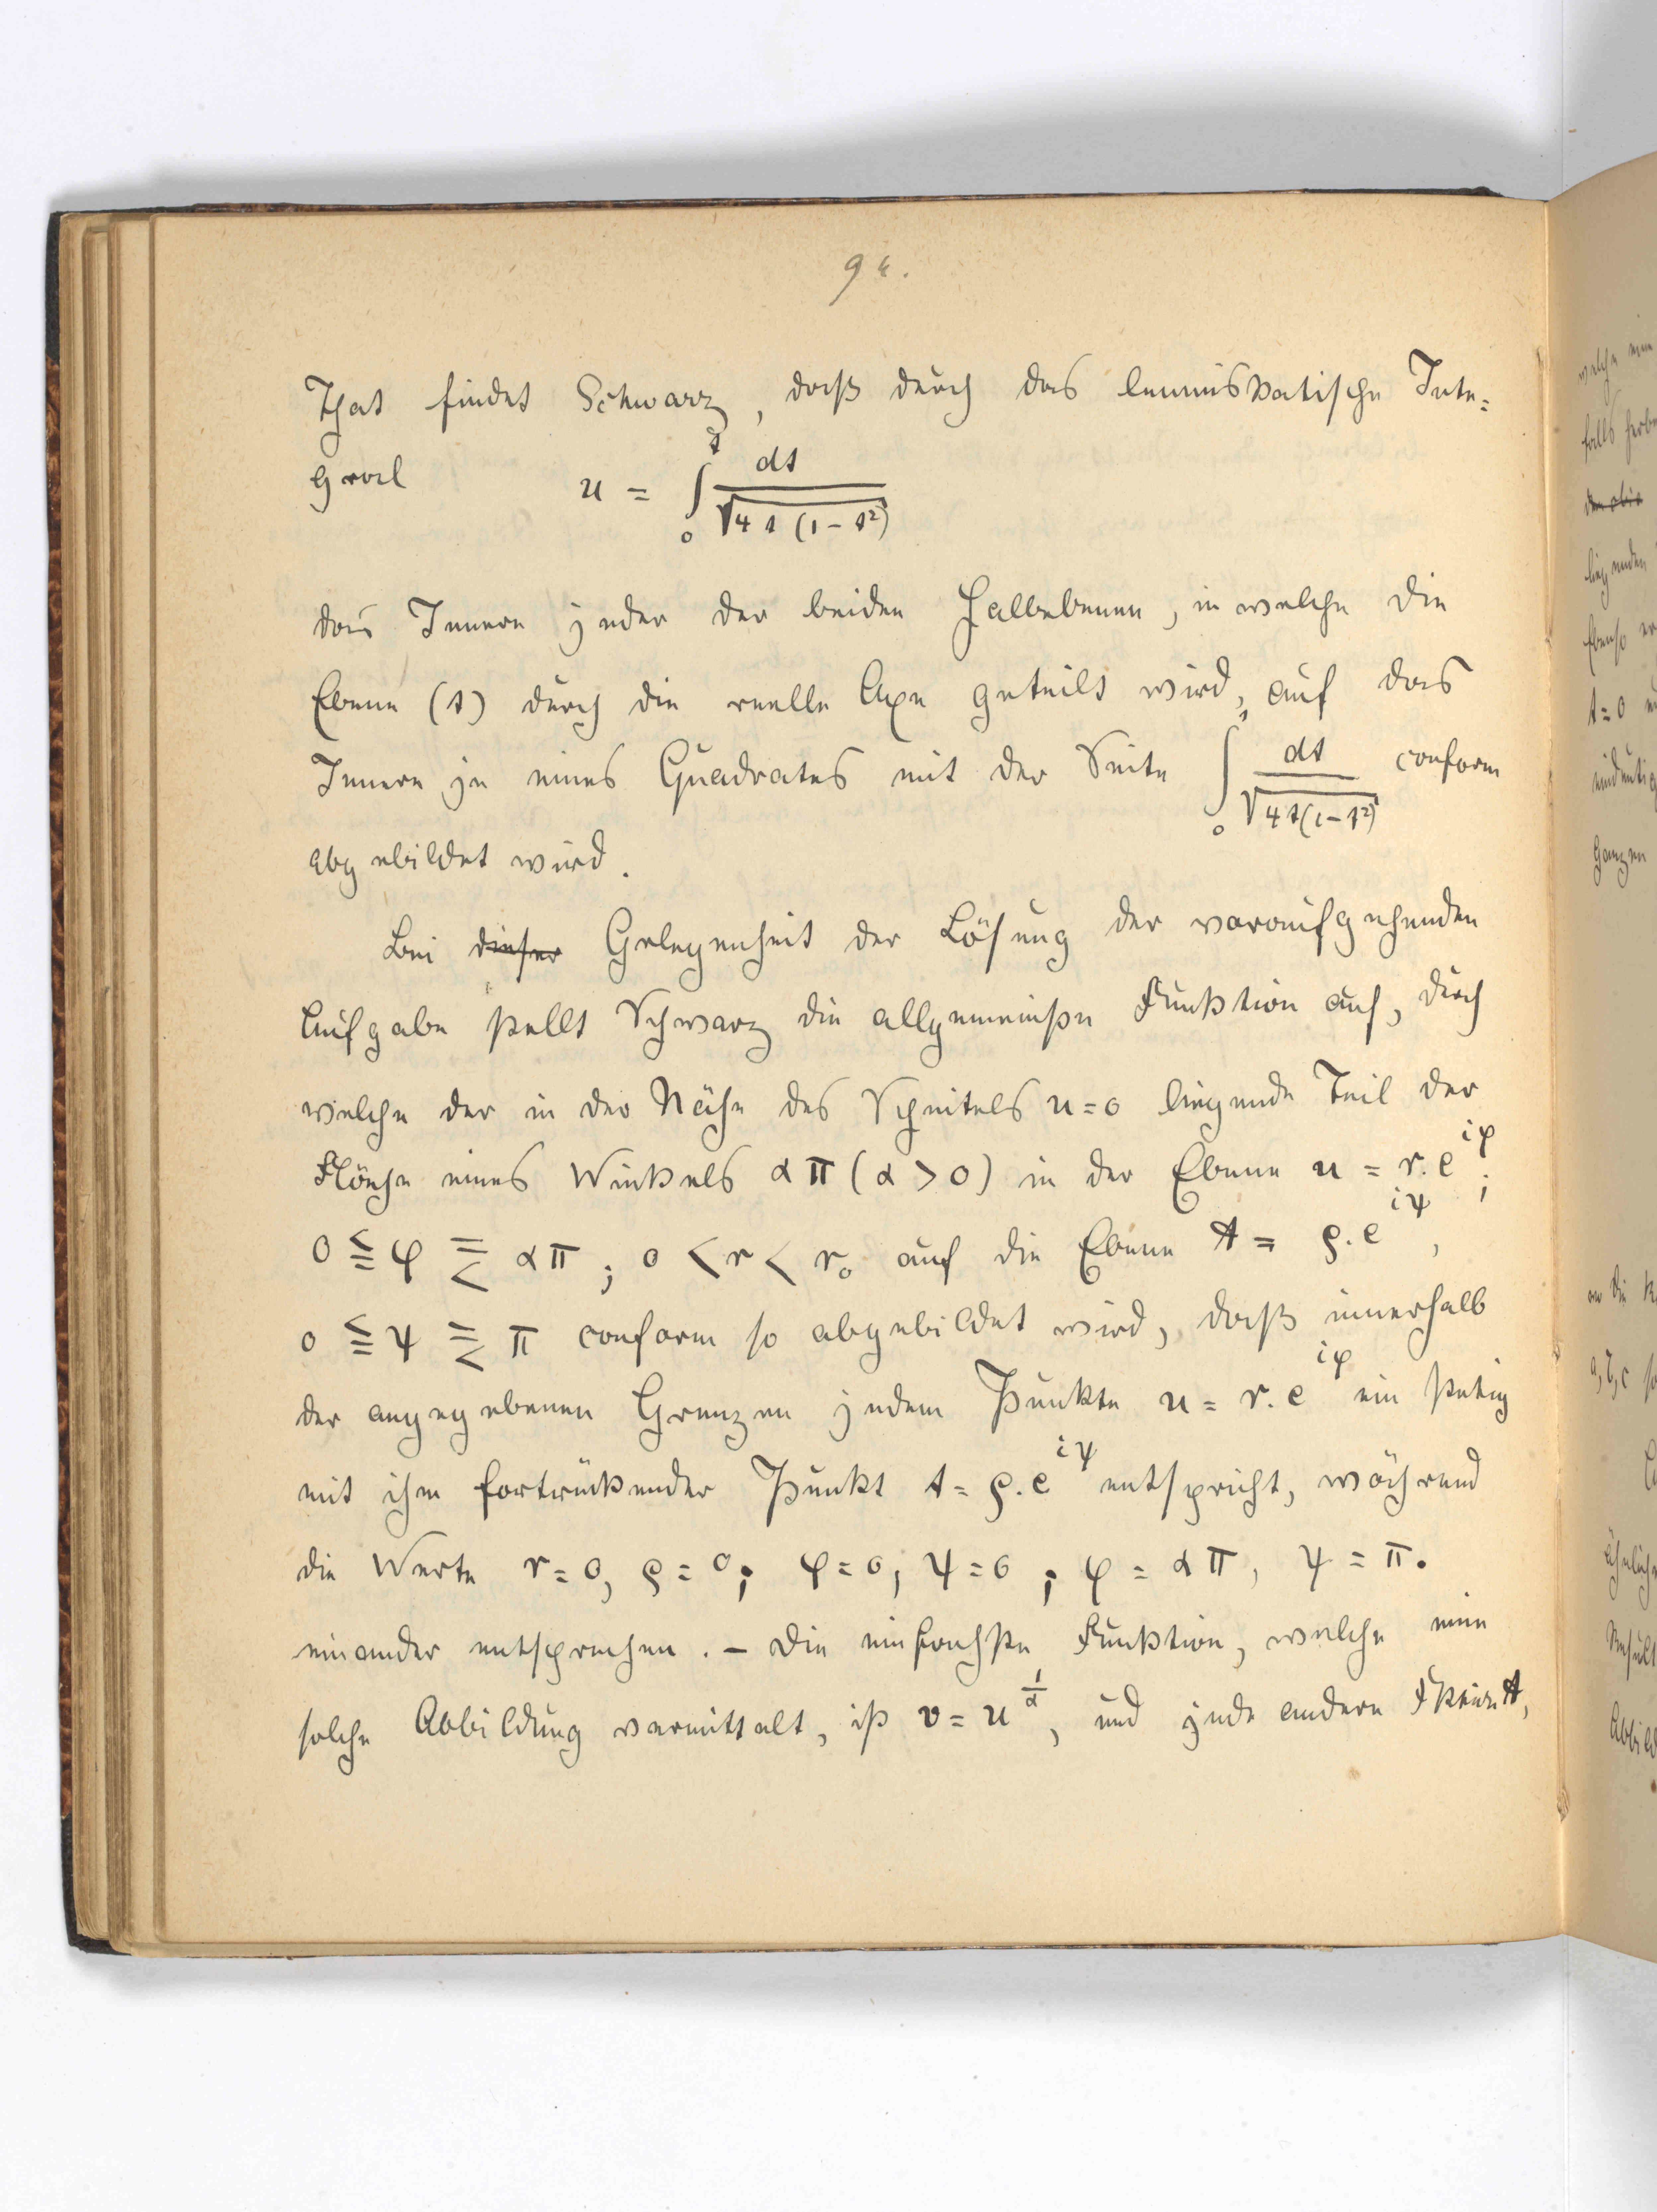 94.
That findet Schwarz, daß durch das lemniskatische Inte=
gral u = ∫₀ᵗ dt / √(4t(1-t²))
das Innere jeder der beiden Halbebenen, in welche die
Ebene (t) durch die reelle Axe geteilt wird, auf das
Innere je eines Quadrates mit der Seite ∫₀¹ dt / √(4t(1-t²)) conform
abgebildet wird.
Bei dieser Gelegenheit der Lösung der voraufgehenden
Aufgabe stellt Schwarz die allgemeinste Funktion auf, durch
welche der in der Nähe des Scheitels u=0 liegende Teil der
Fläche eines Winkels απ (α > 0) in der Ebene u = r.e^{iφ};
0 ≦ φ ≦ απ; 0 < r < r₀ auf die Ebene t = ρ.e^{iψ},
0 ≦ ψ ≦ π conform so abgebildet wird, daß innerhalb
der angegebenen Grenzen jedem Punkte u = r.e^{iφ} ein stetig
mit ihm fortrückender Punkt t = ρ.e^{iψ} entspricht, während
die Werte r=0, ρ=0; φ=0, ψ=0; φ = απ, ψ = π.
einander entsprechen. – Die einfachste Funktion, welche eine
solche Abbildung vermittelt, ist v = u^{1/α}, und jede andere Fktion t,
welche man
falls
liegenden
Ebenso
t=0
eindeutig
ganzen
an die
a, b, c
ähnliche